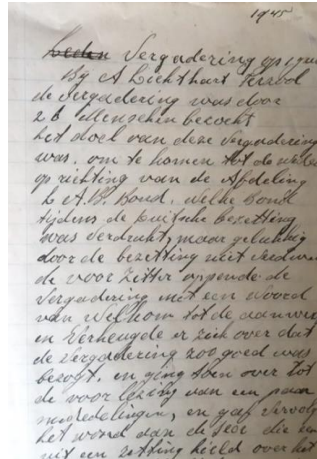 1945
Leden Vergadering op 19
By A Lichthart Terzool
de vergadering was door
26 Menschen bezocht
het doel van deze Vergadering
was, om te komen tot de
op richting van de Afdeling
L.A.B. Bond, welke Bond
tijdens de Duitsche bezetting
was verdrukt, maar gelukkig
door de bezetting niet
de voor zitter oppende de
Vergadering met een Woord
van Welkom tot de
en Verheugde er zich over dat
de vergadering zoo goed was
bezogt. en ging toen over tot
de voor lezing van een paar
mededelingen, en gaf
het woord aan die
uit een zetting hield over het